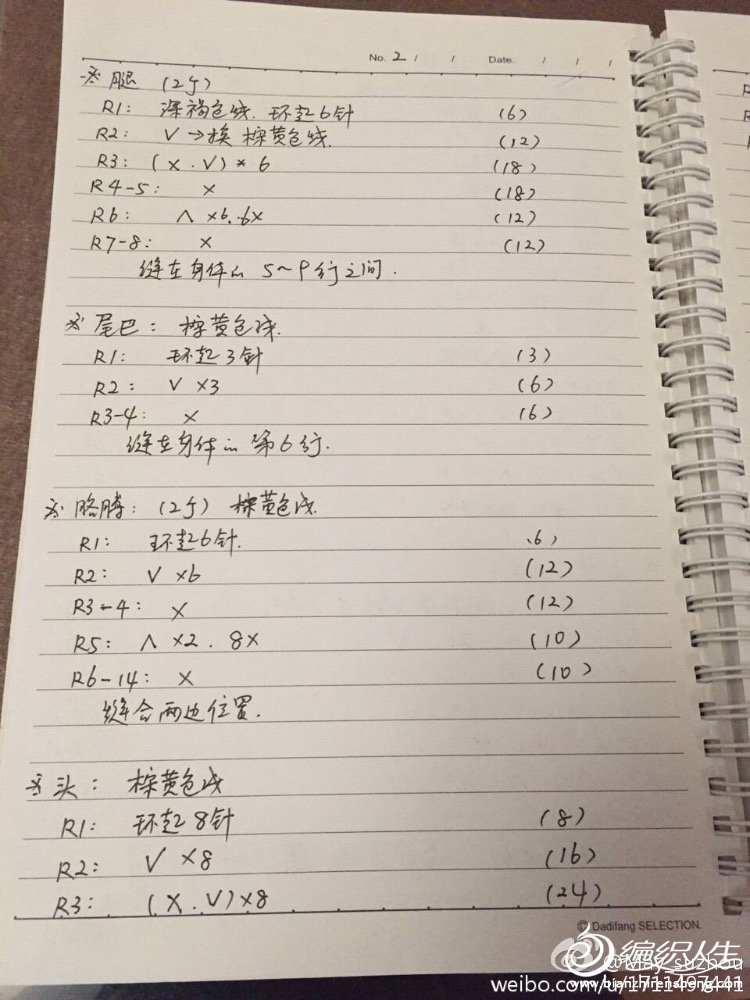 No. 2 / / Date. / / /
※ 腿 (2个)
R1: 深褐色线. 环起6针 (6)
R2: V→换 棕黄色线. (12)
R3: (X . V) * 6 (18)
R4-5: X (18)
R6: Λ x6. 6x (12)
R7-8: X (12)
缝在身体的 5~9行之间.
※ 尾巴: 棕黄色线.
R1: 环起3针 (3)
R2: V x3 (6)
R3-4: X (6)
缝在身体的 第6行.
※ 胳膊: (2个) 棕黄色线.
R1: 环起6针. (6)
R2: V x6 (12)
R3-4: X (12)
R5: Λ x2 . 8x (10)
R6-14: X (10)
缝合两边位置.
※ 头: 棕黄色线
R1: 环起8针 (8)
R2: V x8 (16)
R3: (X . V) x8 (24)
© Dadifang SELECTION.
编织人生
@May_suzhou
weibo.com/u/1711497441